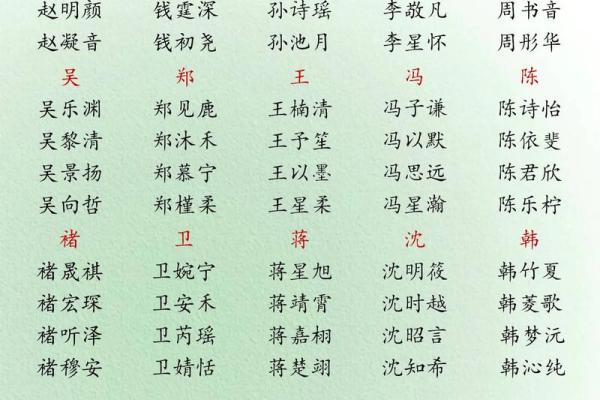 赵明颜 钱霆深 孙诗瑶 李敬凡 周书音
赵凝音 钱初尧 孙池月 李星怀 周彤华
吴 郑 王 冯 陈
吴乐渊 郑见鹿 王楠清 冯子谦 陈诗怡
吴黎清 郑沐禾 王予笙 冯以默 陈依斐
吴景扬 郑慕宁 王以墨 冯思远 陈君欣
吴向哲 郑槿柔 王星柔 冯星瀚 陈乐柠
褚 卫 蒋 沈 韩
褚晟祺 卫婉宁 蒋星旭 沈明筱 韩竹夏
褚宏琛 卫安禾 蒋靖霄 沈时越 韩菱歌
褚听泽 卫芮瑶 蒋嘉栩 沈昭言 韩梦沅
褚穆安 卫婧恬 蒋楚翊 沈知希 韩沁纯